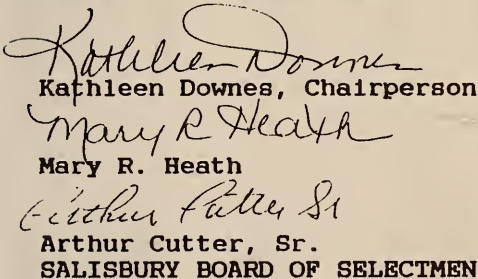 Kathleen Downes
Kathleen Downes, Chairperson
Mary R Heath
Mary R. Heath
Arthur Cutter Sr
Arthur Cutter, Sr.
SALISBURY BOARD OF SELECTMEN